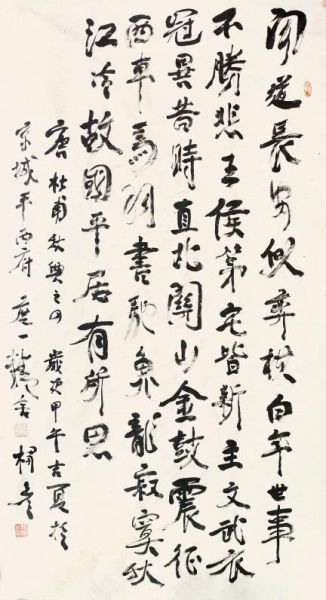 聞道長安似弈棋百年世事
不勝悲王侯第宅皆新主文武衣
冠異昔時直北關山金鼓震征
西車馬羽書馳魚龍寂寞秋
江冷故國平居有所思
唐杜甫秋興之四 歲次甲午吉夏於
京城平西府